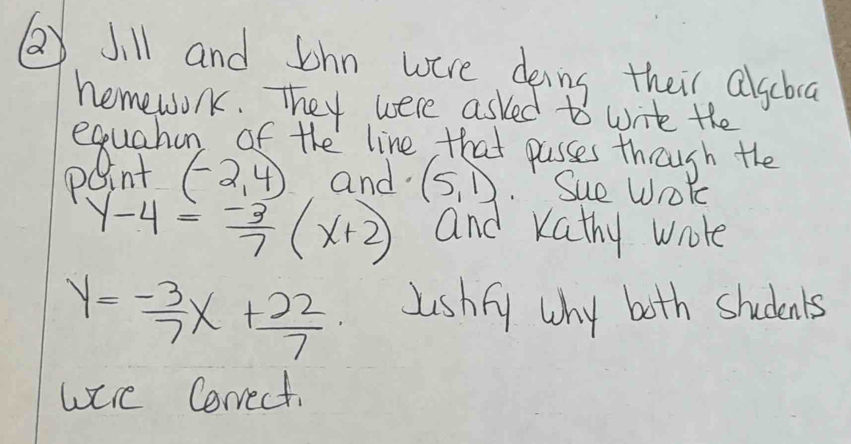 (2) Jill and John were doing their algebra
homework. They were asked to write the
equation of the line that passes through the
point (-2,4) and (5,1). Sue wrote
Y-4 = -3/7 (x+2) and Kathy wrote
Y = -3/7 X + 22/7. Justify why both students
were correct.